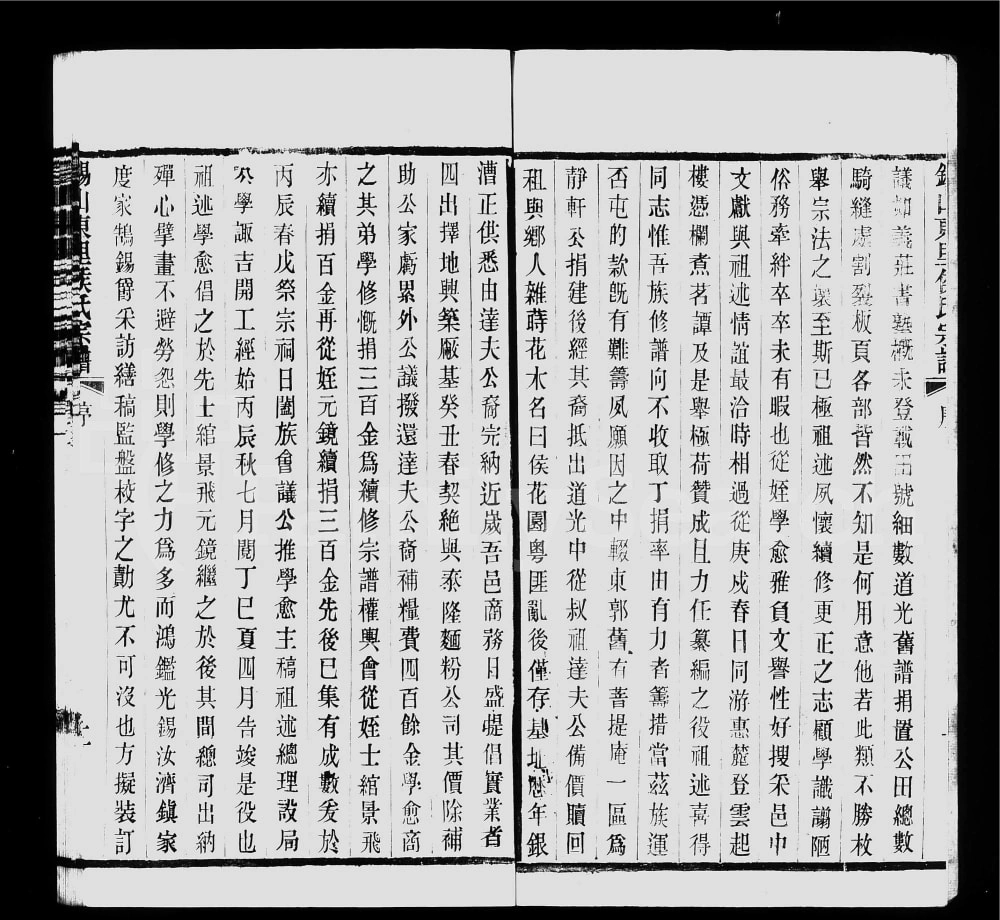 議如義莊書塾槪未登載田號細數道光舊譜捐置公田總數
騎縫處割裂板頁各部皆然不知是何用意他若此類不勝枚
舉宗法之壞至斯已極祖述夙懷續修更正之志顧學識譾陋
俗務牽絆卒卒未有暇也從姪學愈雅負文譽性好搜采邑中
文獻與祖述情誼最洽時相過從庚戌春日同游惠麓登雲起
樓憑欄煮茗譚及是舉極荷贊成且力任纂編之役祖述喜得
同志惟吾族修譜向不收取丁捐率由有力者籌措當茲族運
否屯的款旣有難籌夙願因之中輟東郭舊有菩提庵一區爲
靜軒公捐建後經其裔抵出道光中從叔祖達夫公備價贖回
祖與鄉人雜蒔花木名曰侯花園粤匪亂後僅存基址歷年銀
漕正供悉由達夫公裔完納近歲吾邑商務日盛提倡實業者
四出擇地興築廠基癸丑春契絕與泰隆麵粉公司其價除補
助公家虧累外公議撥還達夫公裔補糧費四百餘金學愈商
之其弟學修慨捐三百金爲續修宗譜權輿會從姪士綰景飛
亦續捐百金再從姪元鏡續捐三百金先後已集有成數爰於
丙辰春戊祭宗祠日闔族會議公推學愈主稿祖述總理設局
公學諏吉開工經始丙辰秋七月閱丁巳夏四月告竣是役也
祖述學愈倡之於先士綰景飛元鏡繼之於後其間總司出納
殫心擘畫不避勞怨則學修之力爲多而鴻鑑光錫汝濟鎭家
度家鵠錫爵采訪繕稿監盤校字之勩尤不可沒也方擬裝訂
錫山東里侯氏宗譜
序